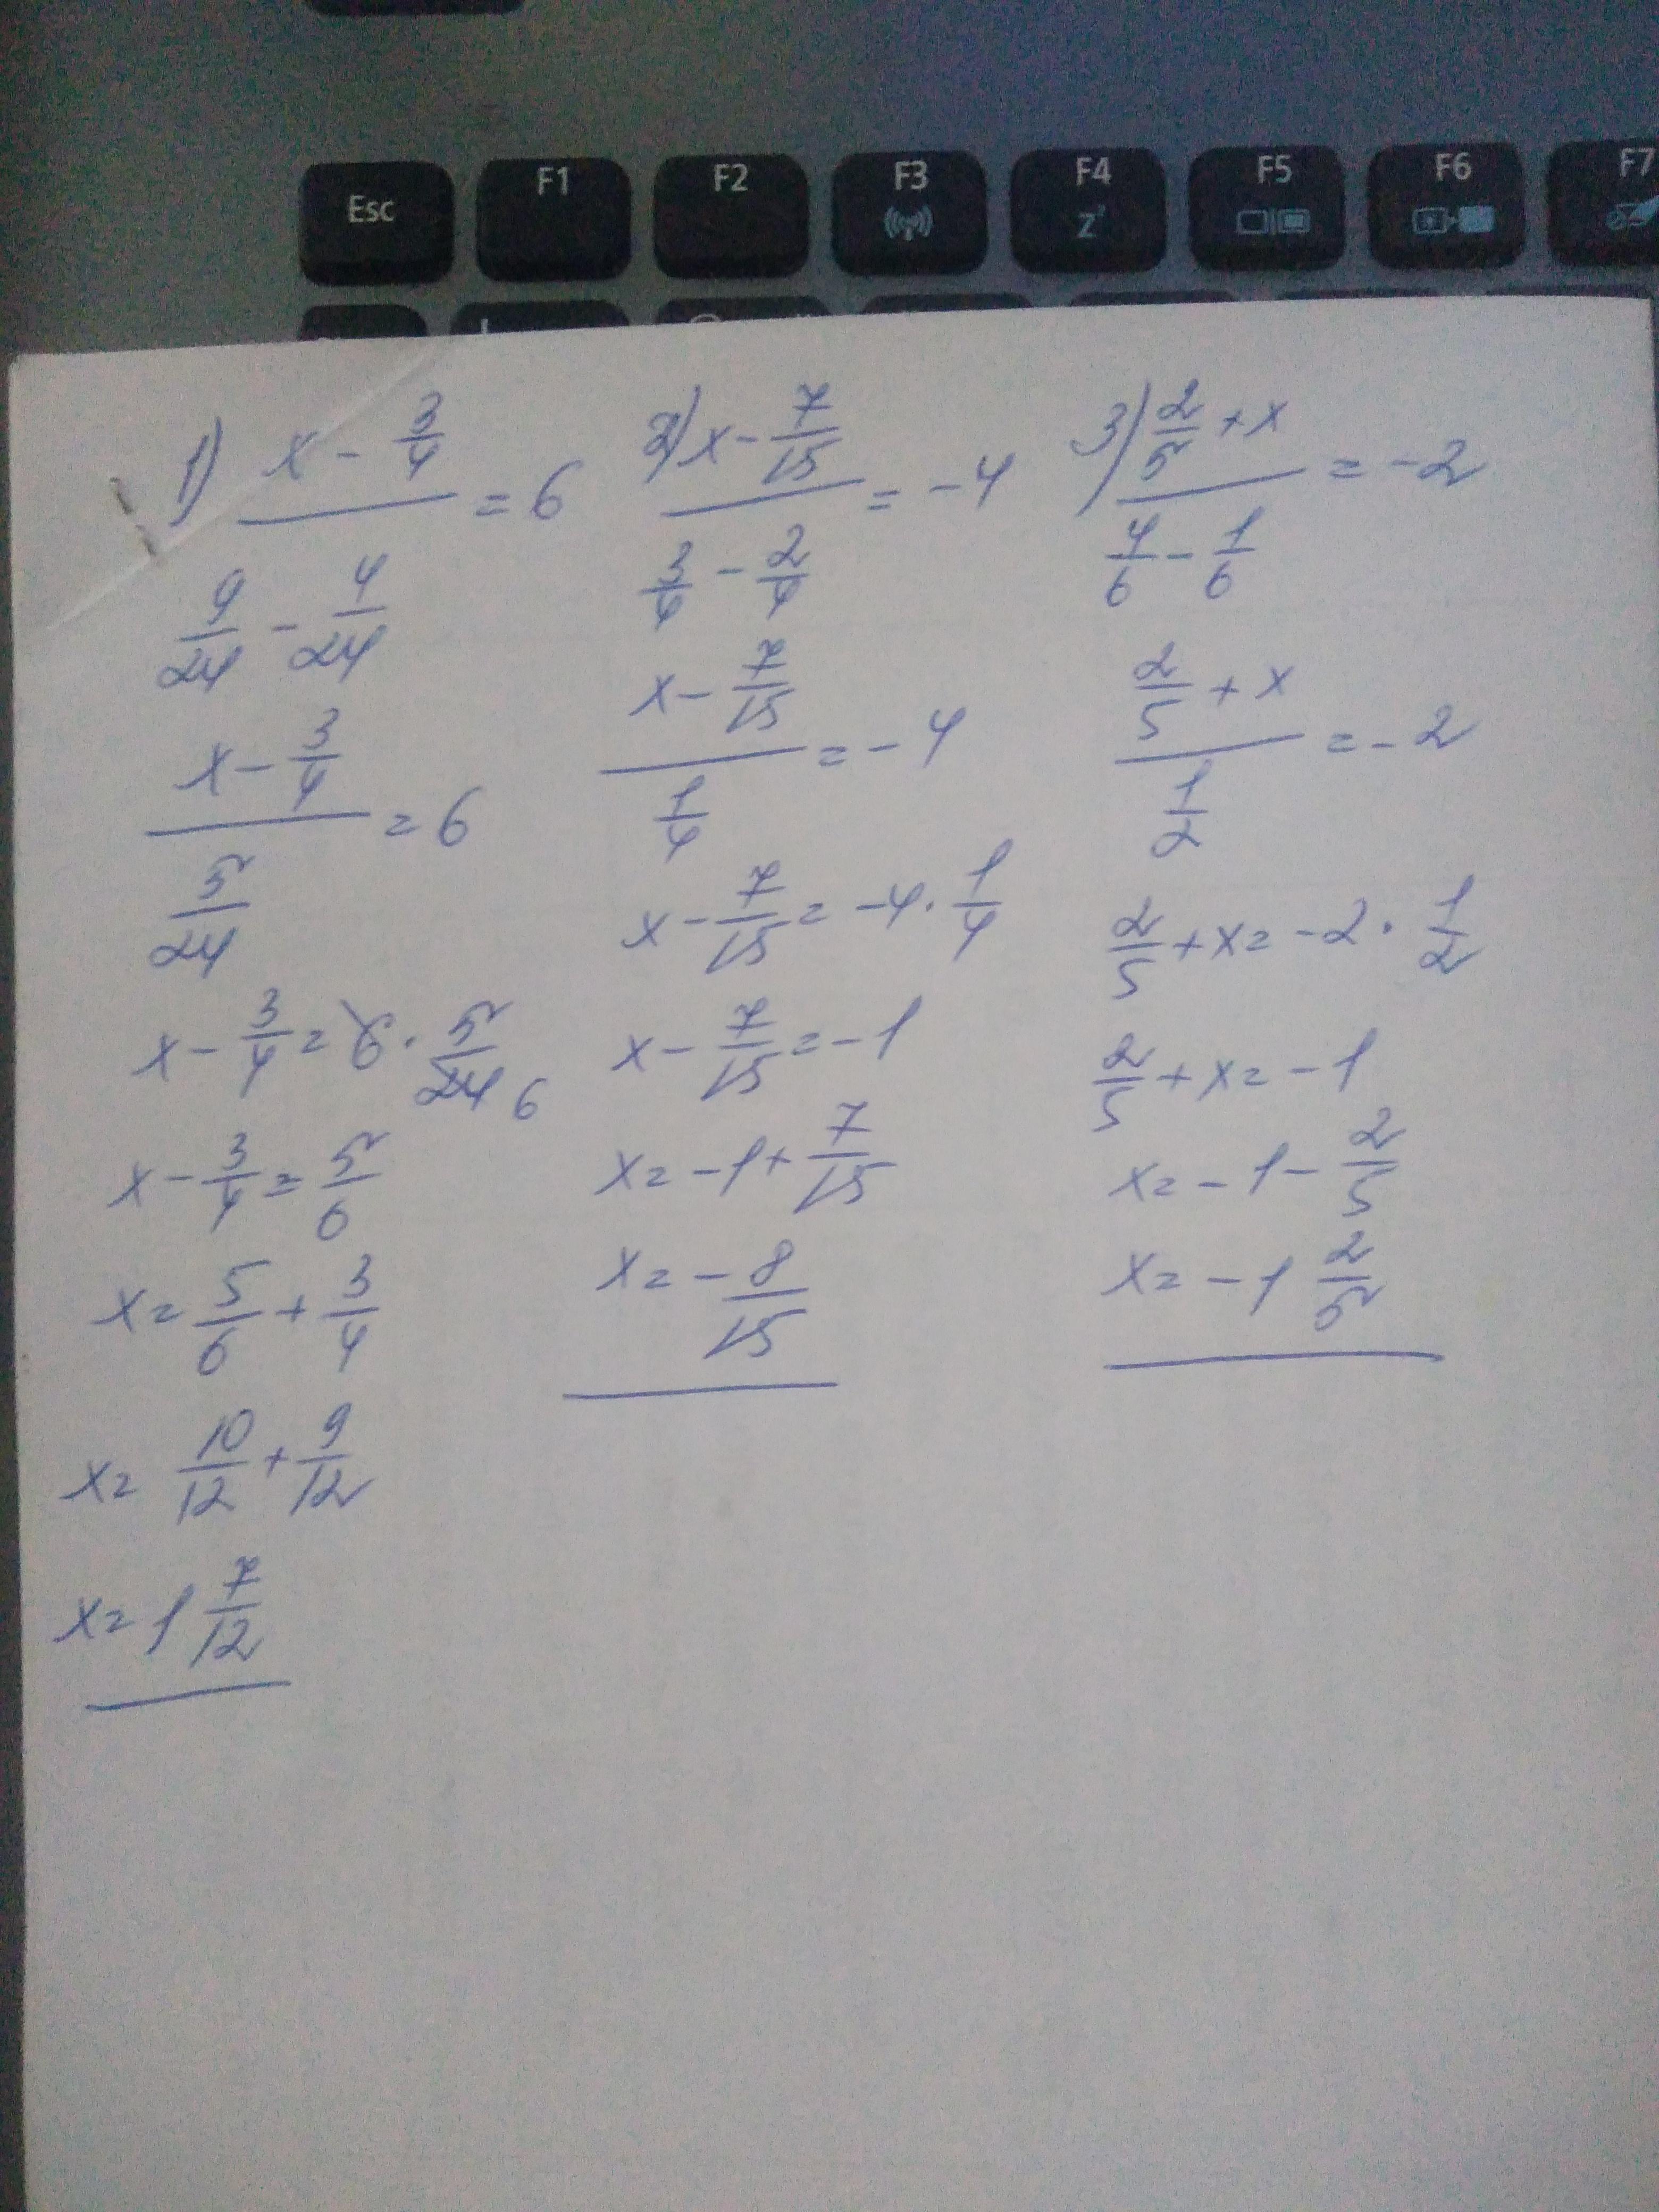 Esc F1 F2 F3 F4 F5 F6 F7
zᶻ
1) (x - 3/4) / (9/24 - 4/24) = 6
(x - 3/4) / (5/24) = 6
x - 3/4 = 6 · 5/24 6
x - 3/4 = 5/6
x = 5/6 + 3/4
x = 10/12 + 9/12
x = 1 7/12
2) (x - 7/15) / (3/4 - 2/4) = -4
(x - 7/15) / (1/4) = -4
x - 7/15 = -4 · 1/4
x - 7/15 = -1
x = -1 + 7/15
x = - 8/15
3) (2/5 + x) / (4/6 - 1/6) = -2
(2/5 + x) / (1/2) = -2
2/5 + x = -2 · 1/2
2/5 + x = -1
x = -1 - 2/5
x = -1 2/5